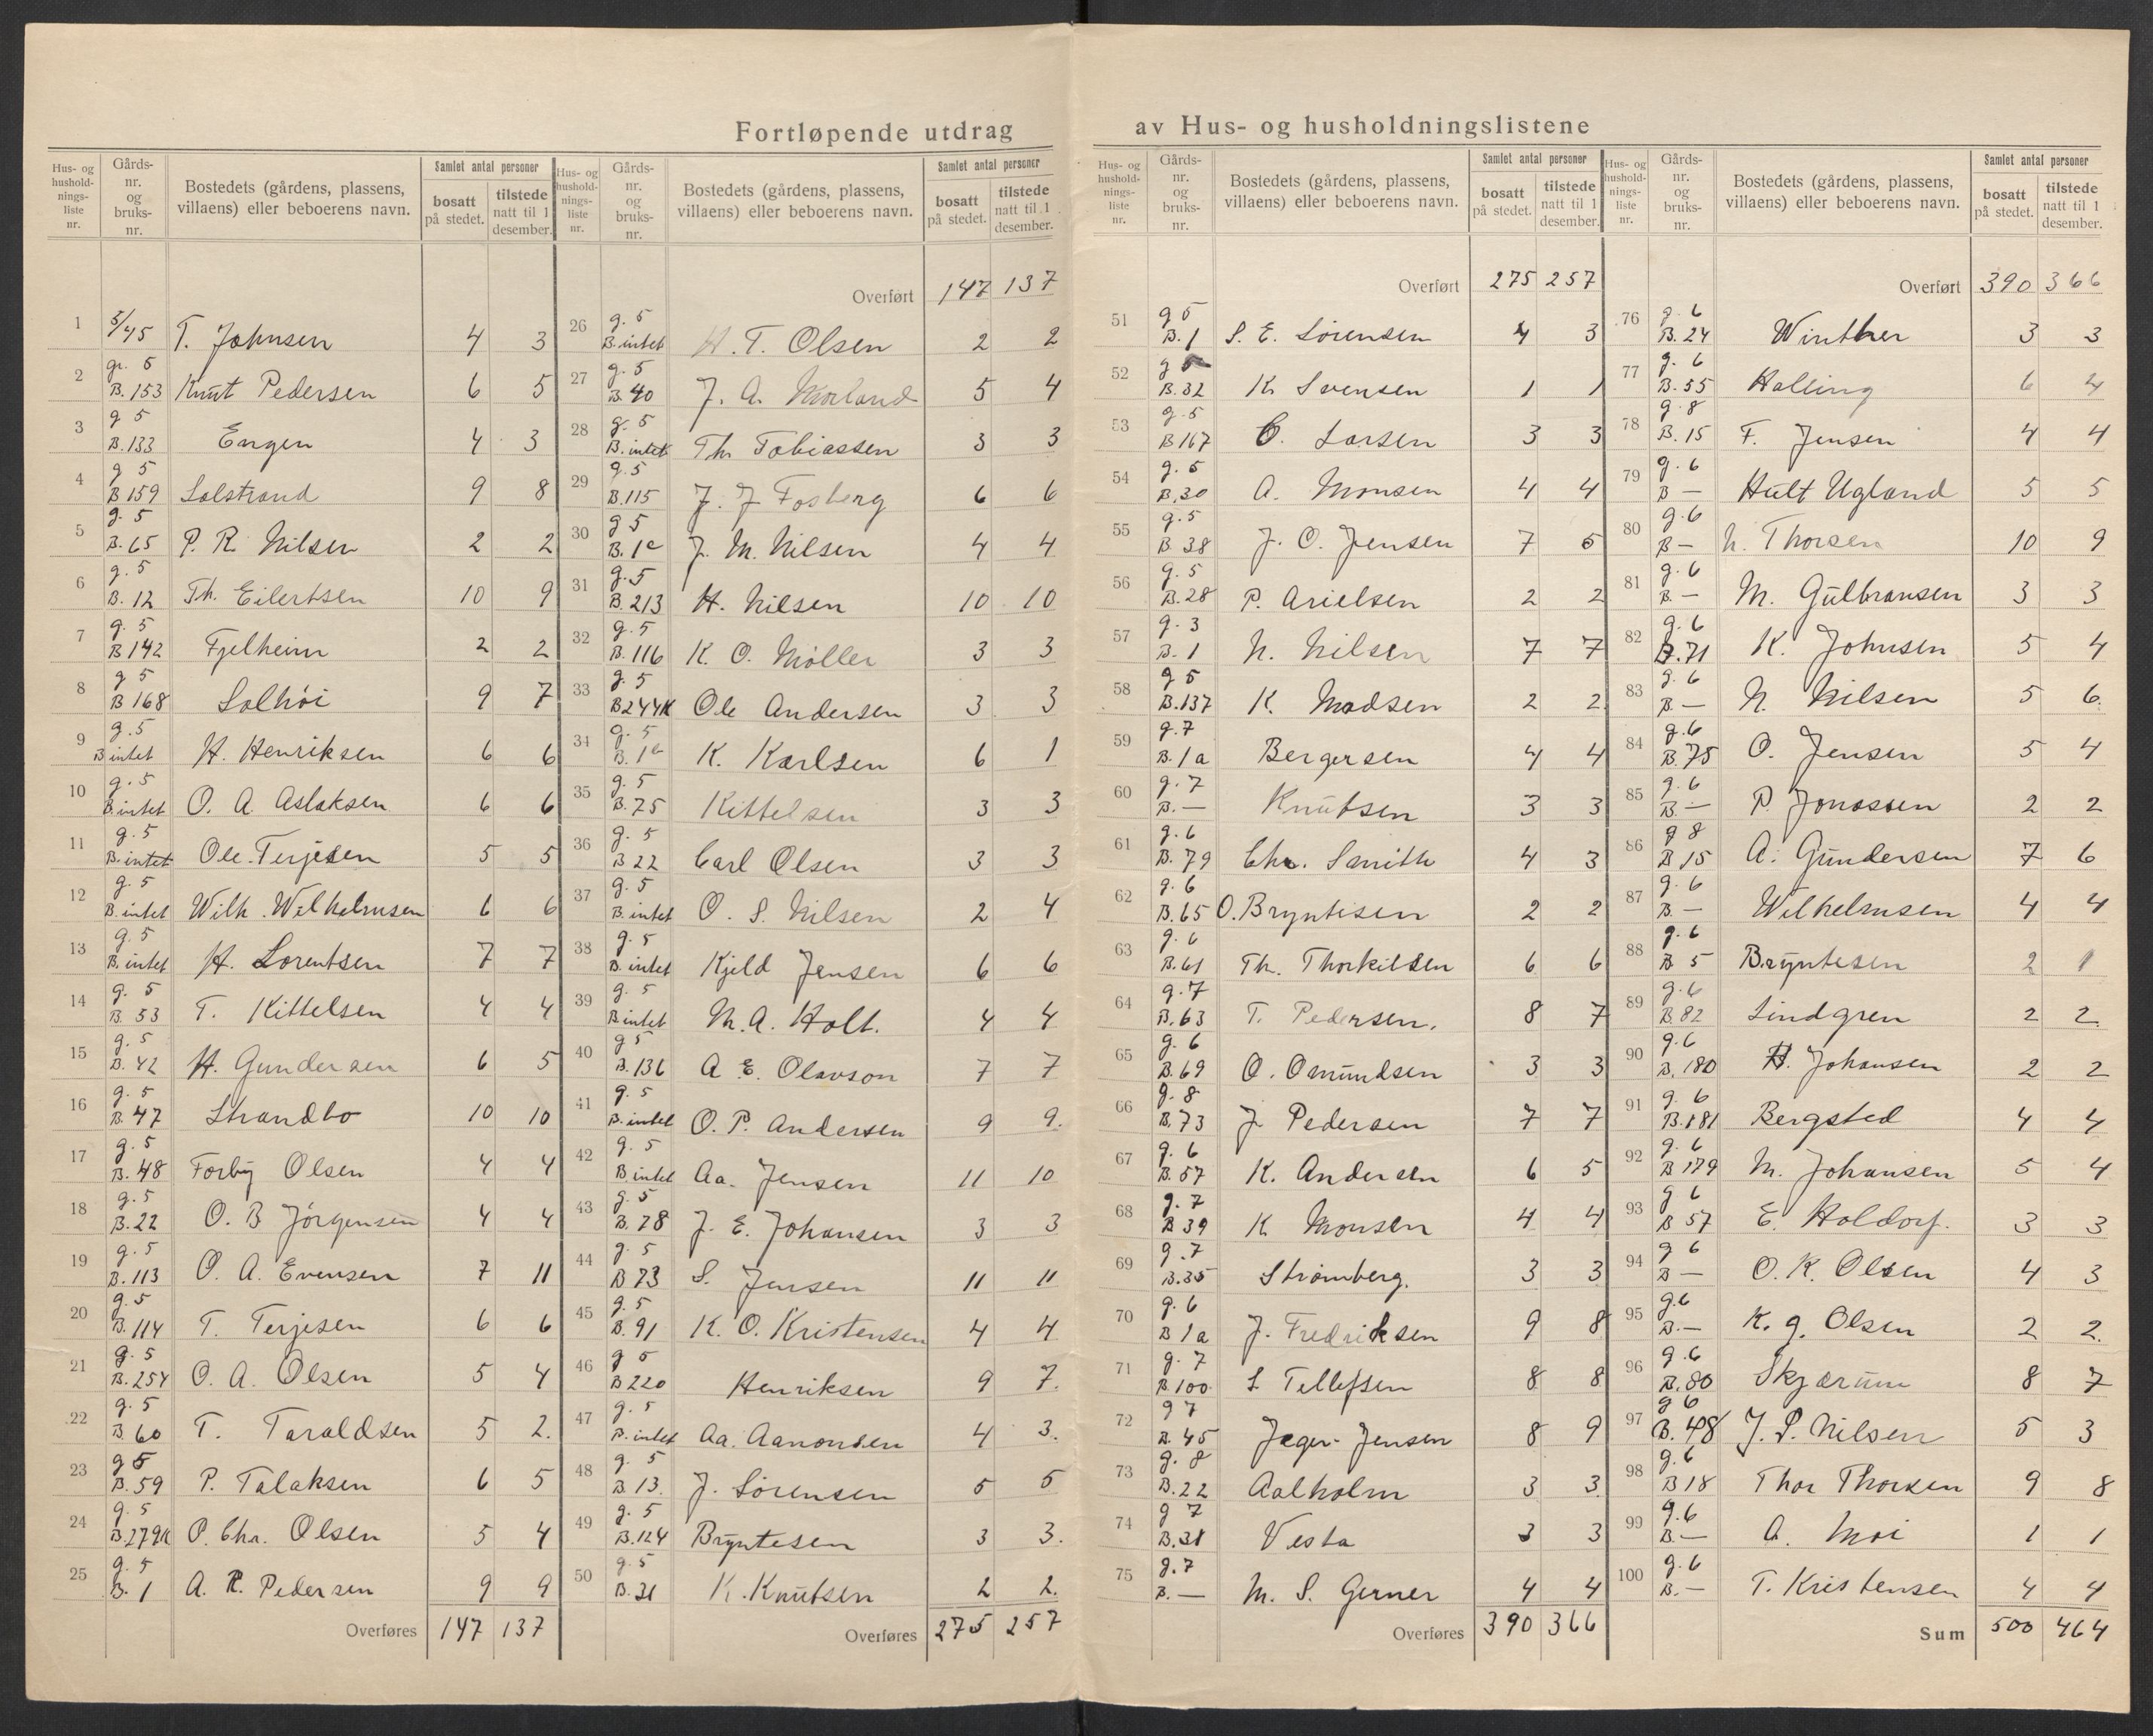 Fortløpende utdrag av Hus- og husholdningslistene
Hus- og hushold-nings-liste nr. Gårds-nr. og bruks-nr. Bostedets (gårdens, plassens, villaens) eller beboerens navn. Samlet antal personer bosatt på stedet. tilstede natt til 1 desember.
1 5/45 T. Johnsen 4 3
2 gr. 5 B.153 Knut Pedersen 6 5
3 g 5 B.133 Engen 4 3
4 g 5 B 159 Solstrand 9 8
5 g. 5 B. 65 P. R. Nilsen 2 2
6 g. 5 B. 12 Th. Eilertsen 10 9
7 g. 5 B 142 Fjelheim 2 2
8 g 5 B 168 Solhøi 9 7
9 g. 5 B intet H. Henriksen 6 6
10 g. 5 B. intet O. A. Aslaksen 6 6
11 g. 5 B. intet Ole Terjesen 5 5
12 g. 5 B. intet Wilh. Wilhelmsen 6 6
13 g. 5 B. intet H. Lorentsen 7 7
14 g. 5 B. 53 T. Kittelsen 4 4
15 g. 5 B. 42 H. Gundersen 6 5
16 g. 5 B. 47 Strandbo 10 10
17 g. 5 B. 48 Forby Olsen 4 4
18 g. 5 B. 22 O. B Jörgensen 4 4
19 g. 5 B. 113 O. A. Evensen 7 11
20 g. 5 B. 114 T. Terjesen 6 6
21 g. 5 B. 254 O. A. Olsen 5 4
22 g. 5 B. 60 T. Taraldsen 5 2.
23 g 5 B. 59 P. Talaksen 6 5
24 g. 5 B. O. Chr. Olsen 5 4
25 g. 5 B. 1 A. R. Pedersen 9 9
Overføres 147 137
Hus- og hushold-nings-liste nr. Gårds-nr. og bruks-nr. Bostedets (gårdens, plassens, villaens) eller beboerens navn. Samlet antal personer bosatt på stedet. tilstede natt til 1 desember.
Overført 147 137
26 g. 5 B. intet H. T. Olsen 2 2
27 g. 5 B. 40 J. A. Morland 5 4
28 g. 5 B. intet Th. Tobiassen 3 3
29 g. 5 B. 115 J. J Fosberg 6 6
30 g 5 B. 1c J. M. Nilsen 4 4
31 g. 5 B. 213 H. Nilsen 10 10
32 g. 5 B. 116 K. O. Møller 3 3
33 g. 5 B Ole Andersen 3 3
34 g. 5 B. K. Karlsen 6 1
35 g. 5 B. 75 Kittelsen 3 3
36 g. 5 B 22 Carl Olsen 3 3
37 g. 5 B. intet O. S. Nilsen 2 4
38 g. 5 B. intet Kjeld Jensen 6 6
39 g. 5 B intet M. A. Holt. 4 4
40 g 5 B. 136 A E. Olavson 7 7
41 g. 5 B. intet O. P. Andersen 9 9.
42 g. 5 B intet Aa. Jensen 11 10
43 g. 5 B. 78 J. E. Johansen 3 3
44 g. 5 B 73 S. Jensen 11 11
45 g. 5 B. 91 K. O. Kristensen 4 4
46 g 5 B 220 Henriksen 9 7.
47 g. 5 B. intet Aa. Aanonsen 4 3.
48 g. 5 B 13. J. Sörensen 5 5
49 g. 5 B. 124 Bryntesen 3 3.
50 g. 5 B. 31 K. Knutsen 2 2.
Overføres 275 257
Hus- og hushold-nings-liste nr. Gårds-nr. og bruks-nr. Bostedets (gårdens, plassens, villaens) eller beboerens navn. Samlet antal personer bosatt på stedet. tilstede natt til 1 desember.
Overført 275 257
51 g 5 B. 1 S. E. Sörensen 4 3
52 g 5 B. 32 K. Svensen 1 1
53 g. 5 B 167 C. Larsen 3 3
54 g. 5 B. 30 A. Monsen 4 4
55 g. 5 B. 38 J. O. Jensen 7 5
56 g. 5 B. 28 P. Arielsen 2 2
57 g. 3 B. 1 N. Nilsen 7 7
58 g 5 B. 137 K. Madsen 2 2
59 g. 7 B. 1a Bergersen 4 4
60 g. 7 B. — Knutsen 3 3
61 g. 6 B. 79 Chr. Smith 4 3
62 g. 6 B. 65 O. Bryntesen 2 2
63 g. 6 B. 61 Th. Thorkilsen 6 6
64 g. 7 B. 63 T. Pedersen. 8 7
65 g. 6 B. 69 O. Omundsen 3 3
66 g. 8 B. 73 J. Pedersen 7 7
67 g. 6 B. 57 K. Andersen 6 5
68 g. 7 B 39 K Monsen 4 4
69 g. 7 B. 35 Strömberg. 3 3
70 g. 6 B 1a J. Fredriksen 9 8
71 g. 7 B. 100 S. Tellefsen 8 8
72 g 7 B. 45 Jæger-Jensen 8 9
73 g. 8 B. 22 Aalholm 3 3
74 g 7 B. 31 Vesta 3 3
75 g. 7 B. — M. S. Gerner 4 4
Overføres 390 366
Hus- og hushold-nings-liste nr. Gårds-nr. og bruks-nr. Bostedets (gårdens, plassens, villaens) eller beboerens navn. Samlet antal personer bosatt på stedet. tilstede natt til 1 desember.
Overført 390 366
76 g. 6 B. 24 Winther 3 3
77 g. 6 B. 55 Halling 6 4
78 g. 8 B. 15 F. Jensen 4 4
79 g. 6 B — Hult Ugland 5 5
80 g. 6 B — N. Thorsen 10 9
81 g. 6 B — M. Gulbransen 3 3
82 g. 6 B. 71 K. Johnsen 5 4
83 g. 6 B — N. Nilsen 5 6.
84 g. 6 B. 75 O. Jensen 5 4
85 g. 6 B. — P. Jonassen 2 2
86 g 8 B 15 A. Gundersen 7 6
87 g. 6 B. — Wilhelmsen 4 4
88 g. 6 B 5 Bryntesen 2 1
89 g. 6 B. 82 Lindgren 2 2
90 g. 6 B. 180 H. Johansen 2 2
91 g. 6 B. 181 Bergsted 4 4
92 g. 6 B 179 M. Johansen 5 4
93 g 6 B 57 E. Holdorf. 3 3
94 g 6 B — O. K. Olsen 4 3
95 g. 6 B. — K. G. Olsen 2 2.
96 g. 6 B. 80 Skjærum 8 7
97 g 6 B. 48 J. P. Nilsen 5 3
98 g. 6 B 18 Thor Thorsen 9 8
99 g. 6 B. — A. Moi 1 1
100 g. 6 B. — T. Kristensen 4 4
Sum 500 464